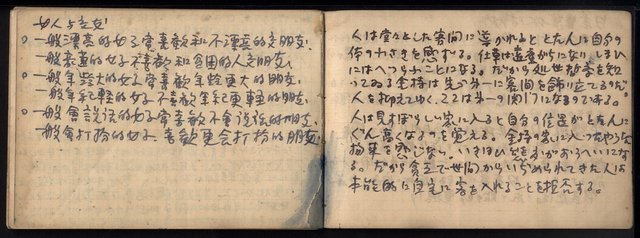 女人与交友
○一般漂亮的女子常喜歡和不漂亮的交朋友、
一般高貴的女子不喜歡和貧困的人交朋友、
○一般年轻的女子常喜歡年轻更大的朋友、
一般年紀輕的女子不喜歡年紀更輕的朋友、
○一般會說話的女子常喜歡不會說話的朋友、
一般會打扮的女子、喜歡更会打扮的朋友
人は堂々とした客間に導かれるととたんに自分の
体の小ささを感ずる。仕事は遠慮がちになりしまひ
にはへつらふことになる。だから処世哲学を知
つてゐる金持は先づ第一に客間を飾り立てるのだ
人を抑えてゆく、ここは第一の関門になるのである。
人は見すぼらしい家に入ると自分の位置がとたんに
ぐんと高くなるのを覚える。金持の家に入ったやうな
拘束を感じない。いきほひ態度がおうへいにな
る。だから貧乏で世間からいぢめられてきた人は
本能的に自宅に客を入れることを拒否する。